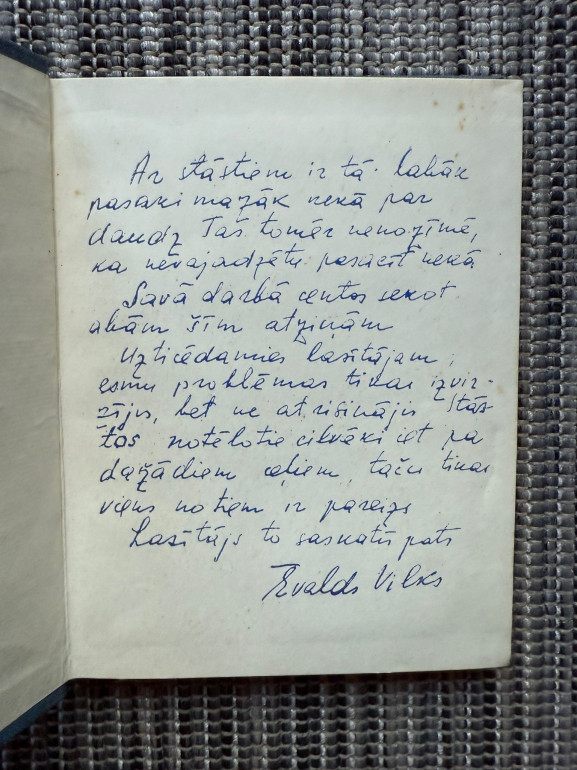 Ar stāstiem ir tā: labāk
pasaki mazāk nekā par
daudz Tas tomēr nenozīmē,
ka nevajadzētu pasacīt nekā
Savā darbā centos sekot
abām šīm atziņām
Uzticēdamies lasītājam,
esmu problēmas tikai izvir-
zījis, bet ne atrisinājis Stās-
tos notēlotie cilvēki iet pa
dažādiem ceļiem, taču tikai
viens no tiem ir pareizs
Lasītājs to saskatīs pats
Ēvalds Vilks